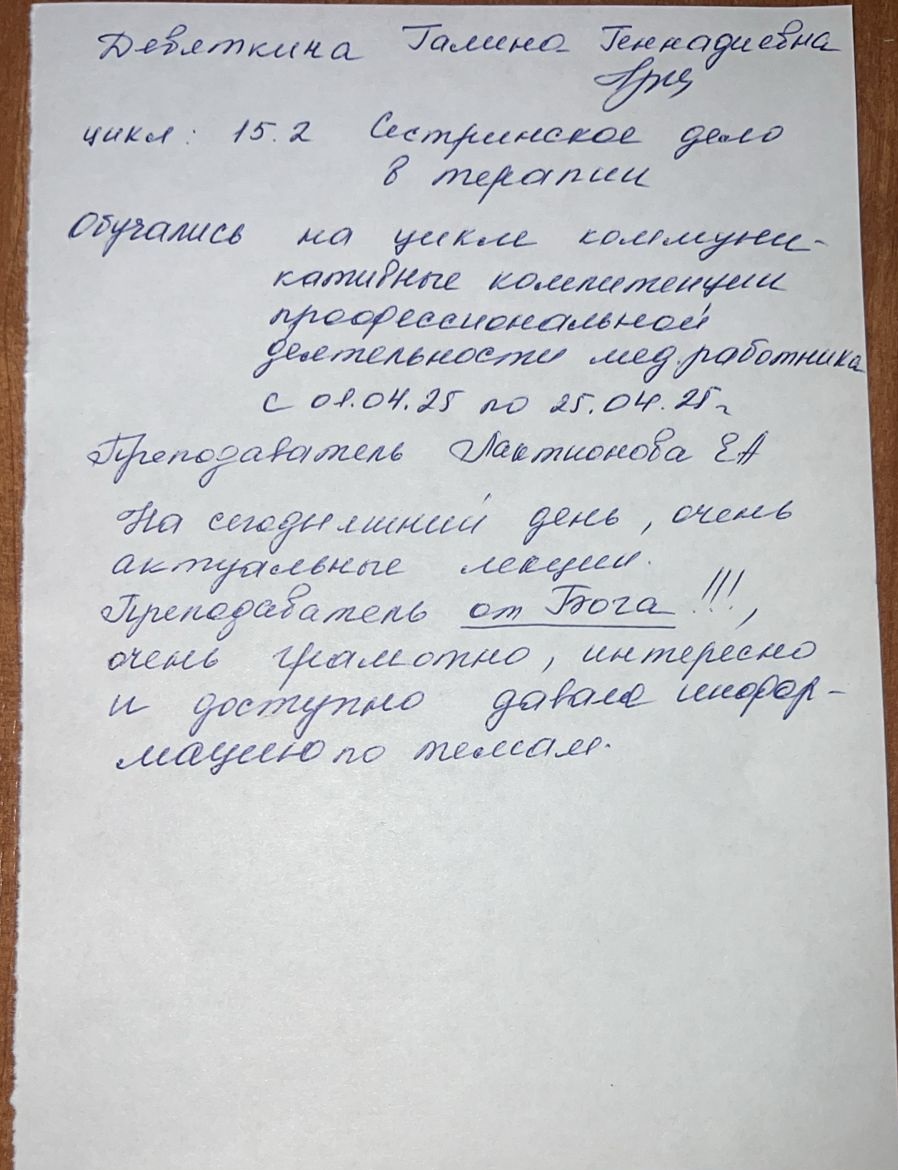 Девяткина Галина Геннадиевна
цикл: 15.2 Сестринское дело
в терапии
Обучались на цикле коммуни-
кативные компитенции
профессиональной
деятельности мед.работника
с 01.04.25 по 25.04.25г
Преподаватель Лактионова ЕА
На сегодняшний день, очень
актуальные лекции.
Преподаватель от Бога !!!,
очень грамотно, интересно
и доступно давала инфор-
мацию по темам.